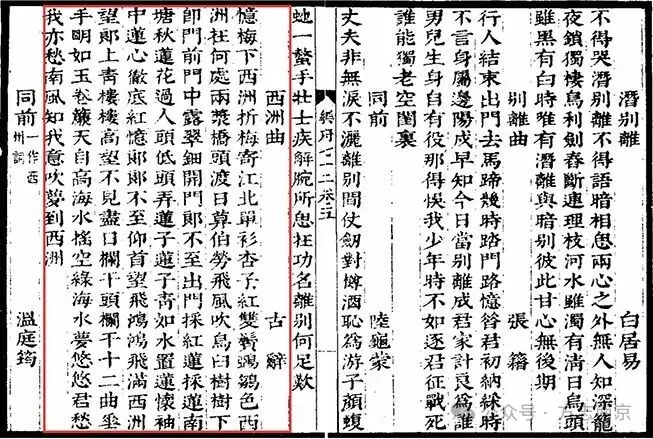 潛别離 白居易
不得哭潛别離不得語暗相思兩心之外無人知深籠
夜鎖獨棲鳥利劍舂斷連理枝河水雖濁有清日烏頭
雖黑有白時唯有潛離與暗别彼此甘心無後期
别離曲 張籍
行人結束出門去馬蹄幾時踏門路憶昔君初納綵時
不言身屬遼陽戍早知今日當别離成君家計良爲誰
男兒生身自有役那得悞我少年時不如逐君征戰死
誰能獨老空閨裏
同前 陸龜蒙
丈夫非無淚不灑離别間仗劒對樽酒恥爲游子顔蝮
虵一螫手壯士疾解腕所思在功名離别何足歎
西洲曲 古辭
憶梅下西洲折梅寄江北單衫杏子紅雙鬢鴉雛色西
洲在何處兩槳橋頭渡日暮伯勞飛風吹烏臼樹樹下
卽門前門中露翠鈿開門郎不至出門採紅蓮採蓮南
塘秋蓮花過人頭低頭弄蓮子蓮子青如水置蓮懷袖
中蓮心徹底紅憶郎郎不至仰首望飛鴻鴻飛滿西洲
望郎上青樓樓高望不見盡日欄干頭欄干十二曲垂
手明如玉卷簾天自高海水搖空綠海水夢悠悠君愁
我亦愁南風知我意吹夢到西洲
同前 一作西州詞 溫庭筠
公众号 · 方志南京